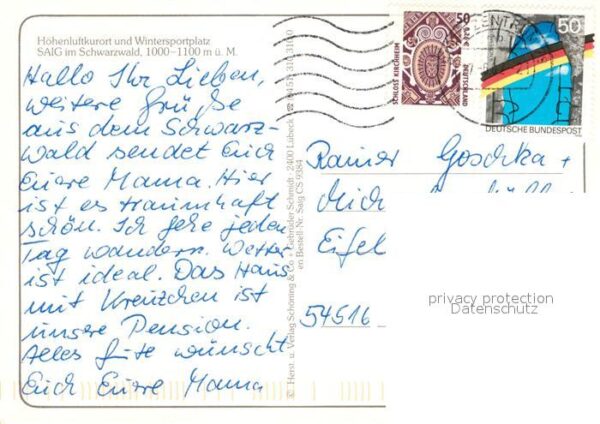 Höhenluftkurort und Wintersportplatz
SAIG im Schwarzwald, 1000–1100 m ü. M.
Hallo Ihr Lieben,
weitere Grüße
aus dem Schwarz-
wald sendet Euch
Eure Mama. Hier
ist es traumhaft
schön. Ich gehe jeden
Tag wandern. Wetter
ist ideal. Das Haus
mit Kreuzchen ist
unsere Pension.
Alles Gute wünscht
Euch Eure Mama
© Herst. u. Verlag Schöning & Co + Gebrüder Schmidt · 2400 Lübeck ☎ (0451) 310310
en Bestell-Nr. Saig CS 9384
50
SCHLOSS KIRCHHEIM
DEUTSCHE BUNDESPOST
50
DEUTSCHE BUNDESPOST
Rainer Goschka +
Mich
Eifel
54516
privacy protection
Datenschutz